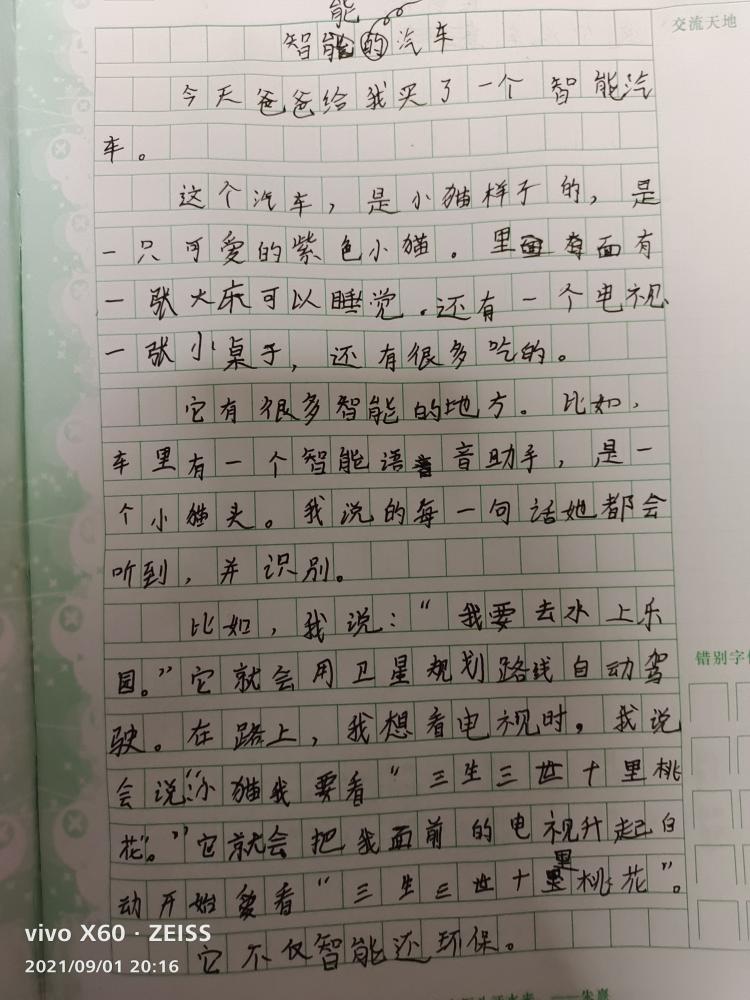 能
智能的汽车
交流天地
今天爸爸给我买了一个智能汽
车。
这个汽车，是小猫样子的，是
一只可爱的紫色小猫。里面有面有
一张大床可以睡觉.还有一个电视
一张小桌子，还有很多吃的。
它有很多智能的地方。比如，
车里有一个智能语音音助手，是一
个小猫头。我说的每一句话她都会
听到，并识别。
比如，我说：“我要去水上乐
园。”它就会用卫星规划路线自动驾
错别字
驶。在路上，我想看电视时，我说
会说：“小猫我要看“三生三世十里桃
花”。”它就会把我面前的电视升起自
里
动开始看“三生三世十里桃花”。
它不仅智能还环保。
vivo X60 · ZEISS
2021/09/01 20:16
——朱熹